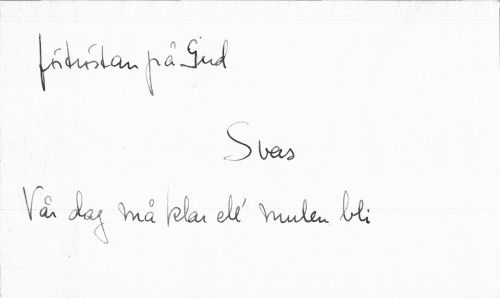 förtröstan på Gud
Svens
Vår dag må klar elé mulen bli